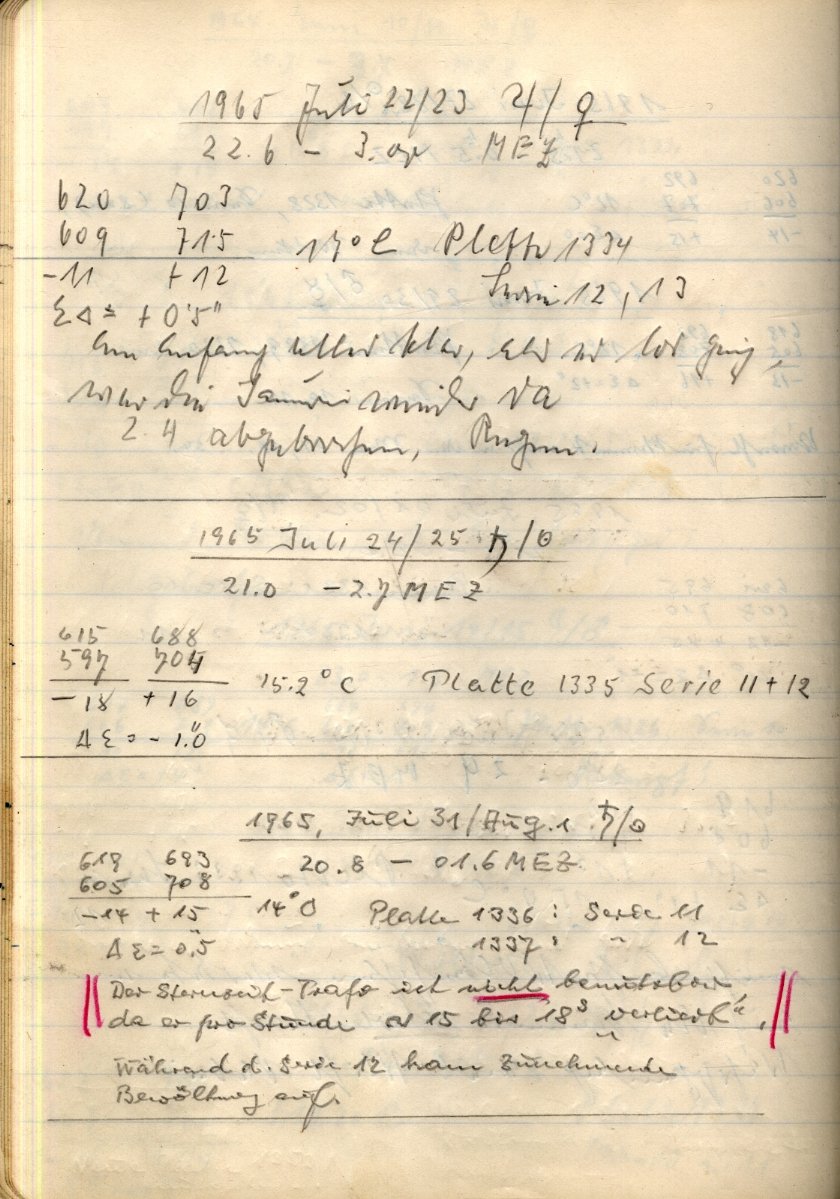 1965 Juli 22/23 ♃/♀
22.6 – 3. MEZ
620 703
609 715 17°C Platte 1334
-11 +12 Serie 12, 13
ΣΔ = +0.5"
Am Anfang alles klar, als es los ging,
war die wieder da
2.4 abgebrochen, Regen.
1965 Juli 24/25 ♄/☉
21.0 – 2.7 MEZ
615 688
597 704 15.2°C Platte 1335 Serie 11+12
-18 +16
ΔΣ = -1."0
1965, Juli 31/Aug. 1 ♄/☉
619 693 20.8 – 01.6 MEZ
605 708
-14 +15 14°C Platte 1336: Serie 11
ΔΣ = 0."5 1337: " 12
Der Sternzeit-Trafo ist nicht benutzbar,
da er pro Stunde 15 bis 18ˢ "verliert".
Während d. Serie 12 kam zunehmende
Bewölkung auf.